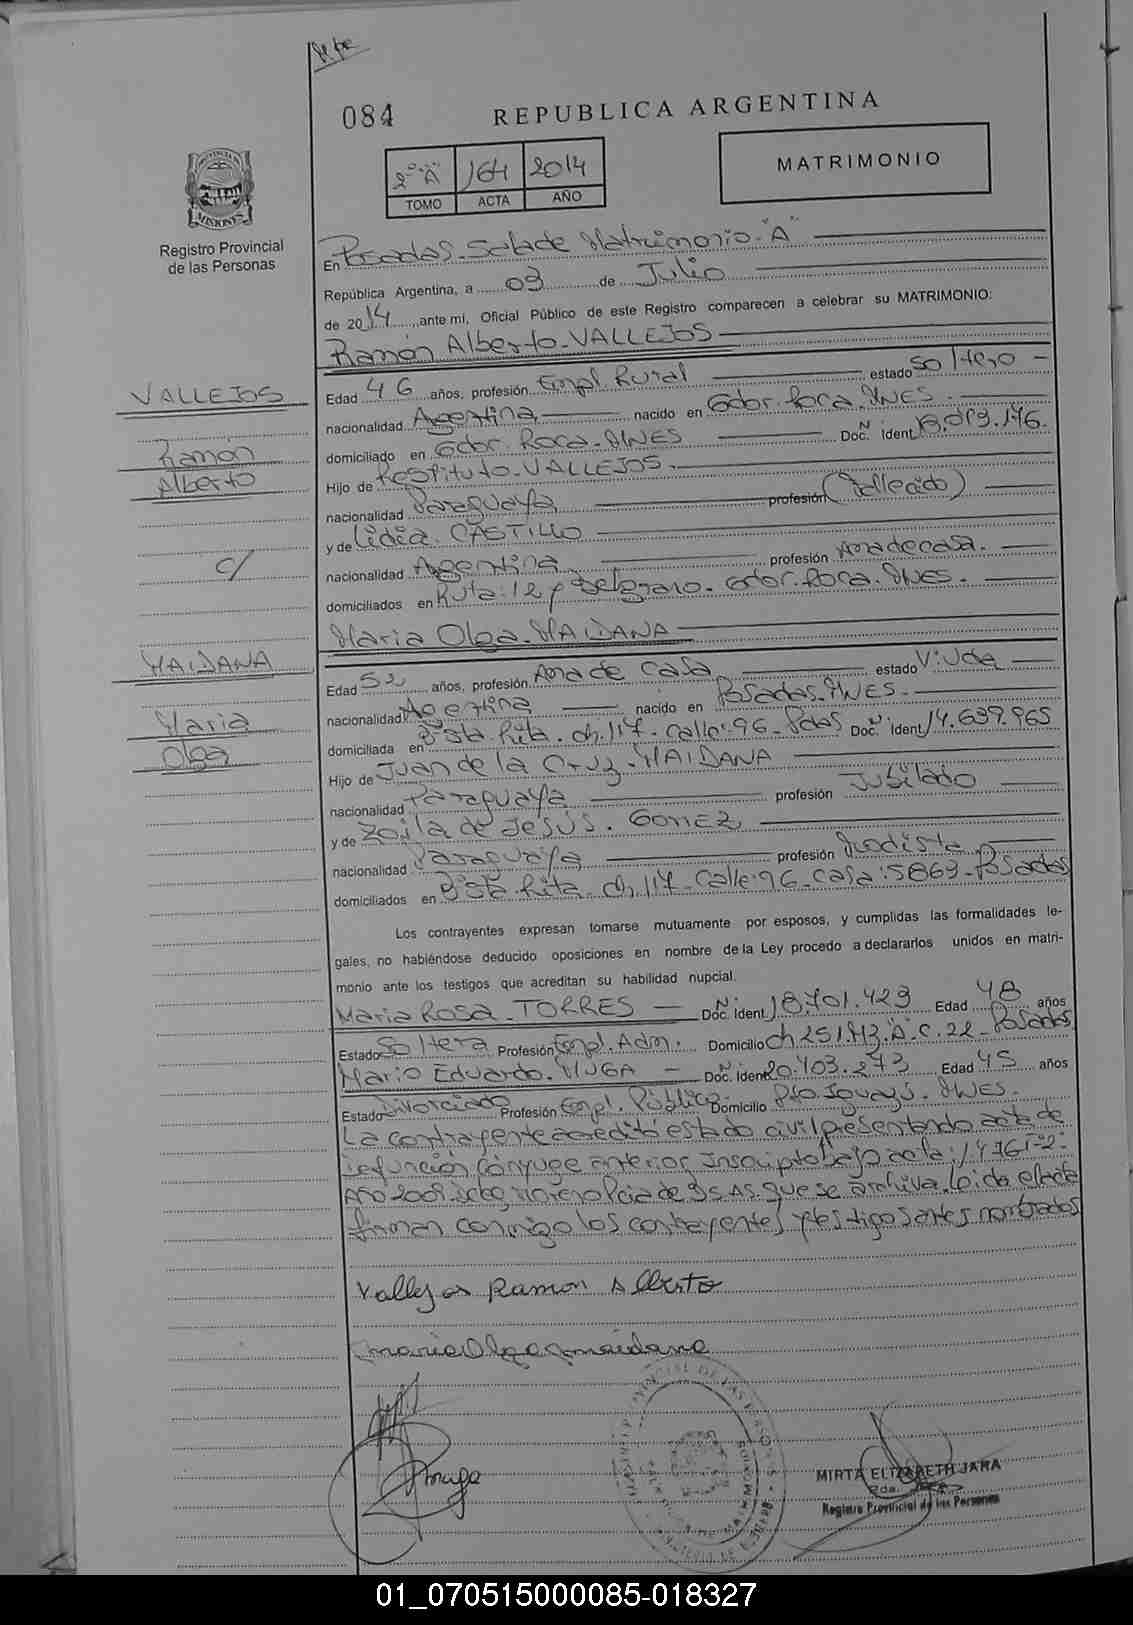 084
REPUBLICA ARGENTINA
2º "A" 164 2014
TOMO ACTA AÑO
MATRIMONIO
PROVINCIA DE
MISIONES
Registro Provincial
de las Personas
En Posadas. Sala de Matrimonio. "A"
República Argentina, a 03 de Julio
de 2014, ante mi, Oficial Público de este Registro comparecen a celebrar su MATRIMONIO:
Ramón Alberto. VALLEJOS
VALLEJOS
Ramón
Alberto
c/
MAIDANA
Maria
Olga
Edad 46 años, profesión Empl. Rural estado Soltero
nacionalidad Argentina nacido en Gdor. Roca. MNES.
domiciliado en Gdor. Roca. MNES Doc. Nº ident.
Hijo de Restituto. VALLEJOS.
nacionalidad Paraguaya profesión (Fallecido)
y de Lidia. CASTILLO
nacionalidad Argentina profesión Ama de casa.
domiciliados en Ruta: 12 y Belgrano. Gdor. Roca. MNES.
Maria Olga. MAIDANA
Edad años, profesión Ama de Casa estado Viuda
nacionalidad Argentina nacido en Posadas. MNES.
domiciliada en Bº Sta. Rita. ch. 117. Calle: 96. Pdas Doc. Nº Ident. 14.639.965
Hijo de Juan de la Cruz. MAIDANA
nacionalidad Paraguaya profesión Jubilado
y de Zoila de Jesús. GOMEZ
nacionalidad Paraguaya profesión Modista
domiciliados en Bº Sta. Rita. ch. 117. Calle: 96. Casa: 5869. Posadas
Los contrayentes expresan tomarse mutuamente por esposos, y cumplidas las formalidades le-
gales, no habiéndose deducido oposiciones en nombre de la Ley procedo a declararlos unidos en matri-
monio ante los testigos que acreditan su habilidad nupcial.
Maria Rosa. TORRES Doc. Nº Ident. 18.701.429 Edad 48 años
Estado Soltera Profesión Empl. Adm. Domicilio ch 251. MZ. A. C. 22. Posadas
Mario Eduardo. MUGA Doc. Nº Ident. 20.403.273 Edad 45 años
Estado Divorciado Profesión Empl. Público Domicilio Pto. Iguazú. MNES.
La contrayente acreditó estado civil presentando acta de
defunción cónyuge anterior, inscripto bajo acta:
Año 2009. Moreno Pcia de Bs As. que se archiva. Leida el acta
firman conmigo los contrayentes y testigos antes nombrados
Vallejos Ramon Alberto
Maria Olga Maidana
Muga
MIRTA ELIZABETH JARA
Registro Provincial de las Personas
01_070515000085-018327